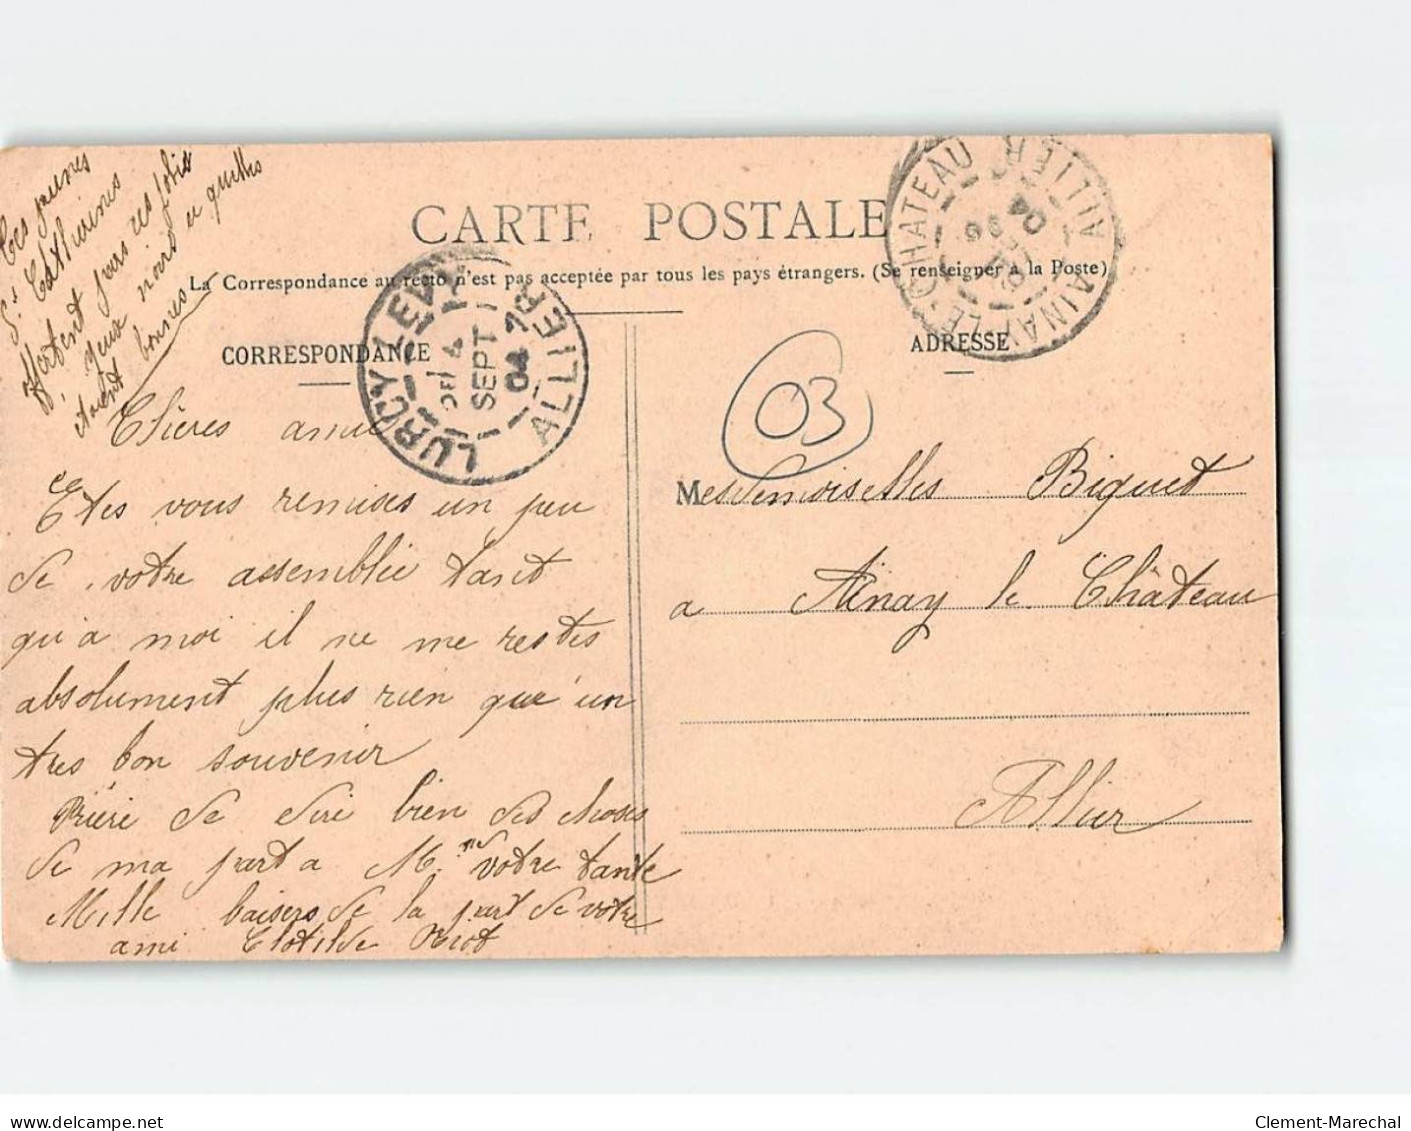 Ces jeunes
St Catherines
offrent
yeux noirs
bonnes
CARTE POSTALE
La Correspondance au recto n'est pas acceptée par tous les pays étrangers. (Se renseigner à la Poste)
CORRESPONDANCE
ADRESSE
LURCY-LEVY
4
SEPT
04
ALLIER
AINAY-LE-CHATEAU
ALLIER
04
03
Chères amies
Etes vous remises un peu
de votre assemblée tant
qu'a moi il ne me restes
absolument plus rien que un
tres bon souvenir
Prière de dire bien des choses
de ma part a M.me votre tante
Mille baisers de la part de votre
ami Clotilde
Mesdemoiselles Biguet
a Ainay le Château
Allier
www.delcampe.net
Clement-Marechal